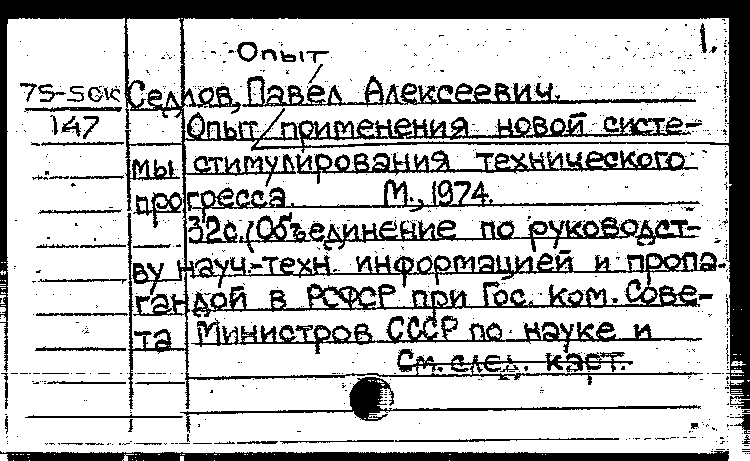 1.
Опыт
75-5GK Седлов, Павел Алексеевич.
147 Опыт применения новой систе-
мы стимулирования технического
прогресса. М., 1974.
32с. (Объединение по руководст-
ву науч.-техн. информацией и пропа-
гандой в РСФСР при Гос. ком. Сове-
та Министров СССР по науке и
См. след. карт.